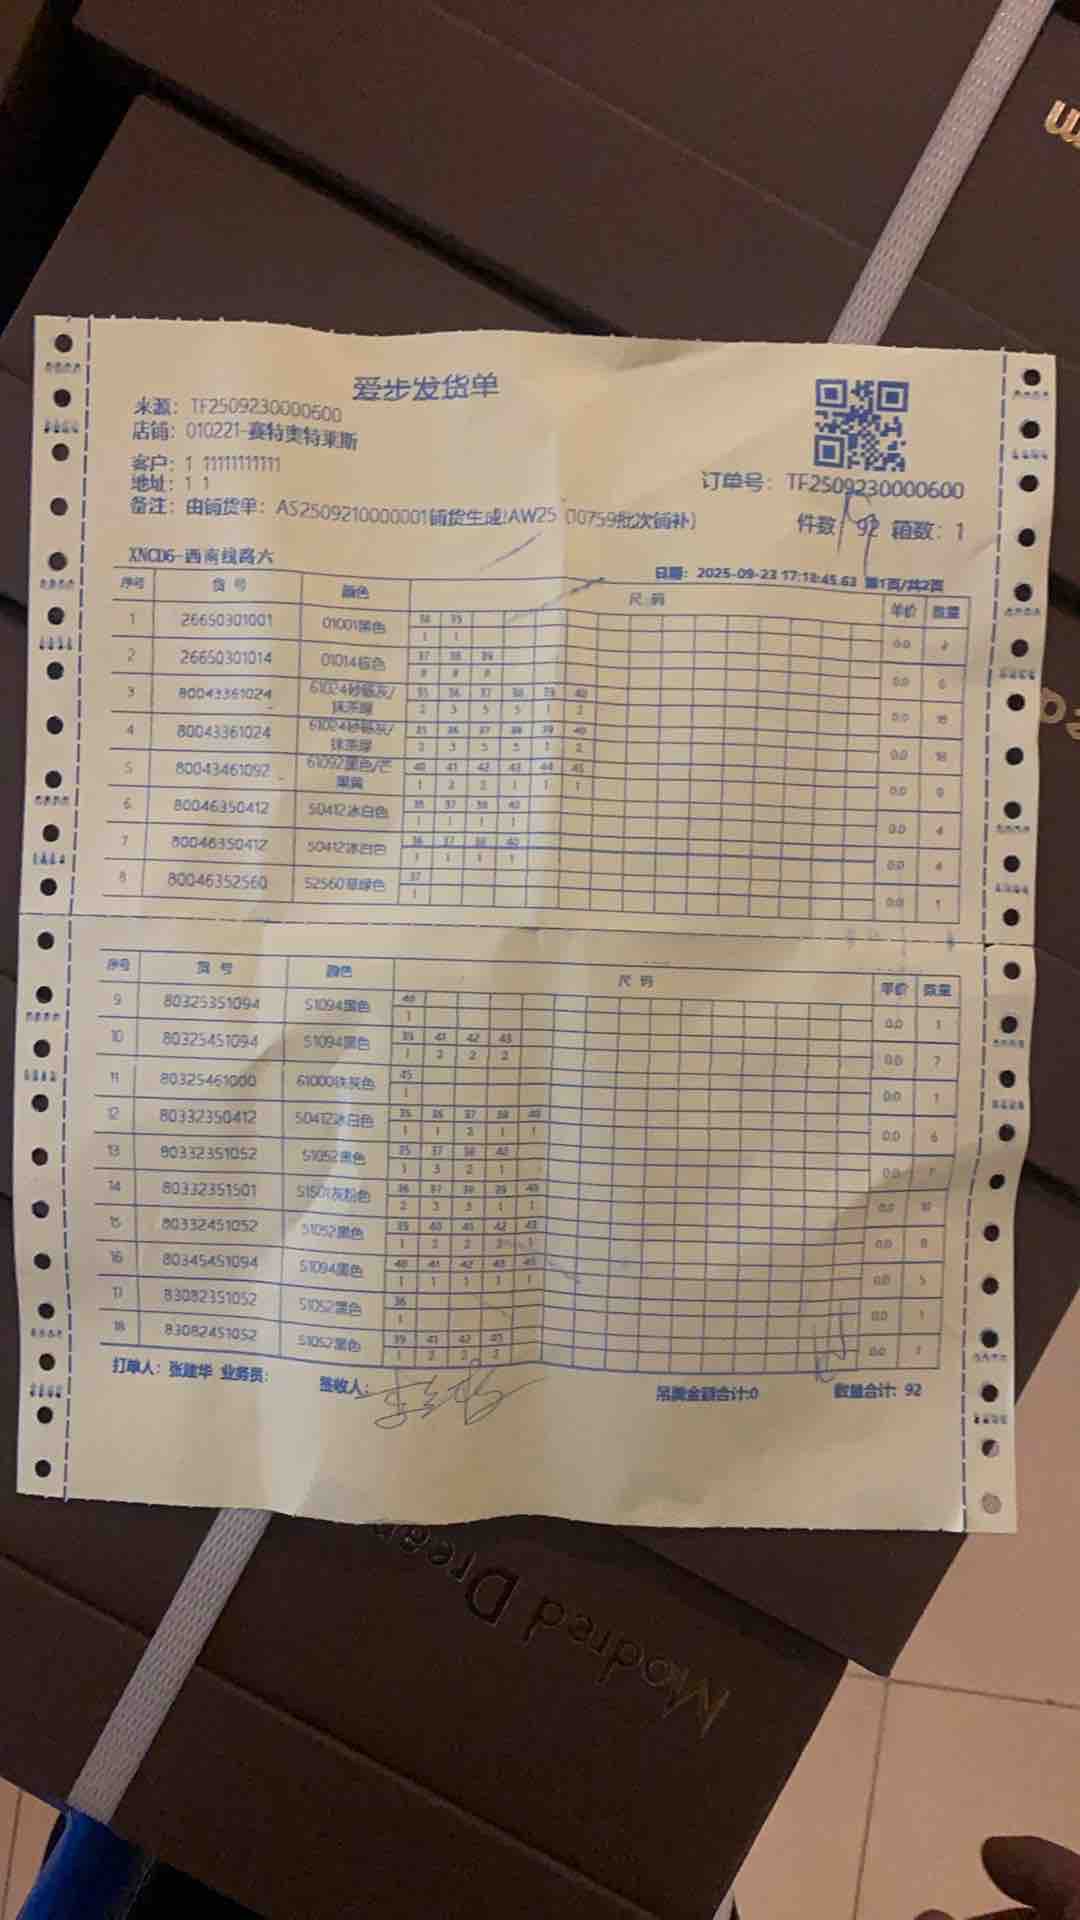 爱步发货单
来源: TF2509230000600
店铺: 010221-赛特奥特莱斯
客户: 1 11111111111
地址: 1 1
订单号: TF2509230000600
备注: 由铺货单: AS2509210000001铺货生成(AW25 00759批次铺补)
件数: 92 箱数: 1
XNCD6-西南线路六
日期: 2025-09-23 17:13:45.63 第1页/共2页
序号 货号 颜色 尺码 单价 数量
1 26650301001 01001黑色 0.0 2
1 1
2 26650301014 01014棕色 37 38 39 0.0
3 80043361024 61024砂砾灰/抹茶绿 35 36 37 38 39 40 0.0
2 3 5 5 1 2
4 80043361024 61024砂砾灰/抹茶绿 35 36 37 38 39 40 0.0
2 3 5 5 1 2
5 80043461092 61092黑色/芒果黄 40 41 42 43 44 45 0.0
1 2 2 1 1 1
6 80046350412 50412冰白色 37 38 40 0.0 4
1 1 1 1
7 80046350412 50412冰白色 36 37 38 40 0.0 4
1 1 1 1
8 80046352560 52560草绿色 37 0.0 1
1
序号 货号 颜色 尺码 单价 数量
9 80325351094 51094黑色 40 0.0 1
1
10 80325451094 51094黑色 39 41 42 43 0.0 7
1 2 2 2
11 80325461000 61000铁灰色 45 0.0 1
1
12 80332350412 50412冰白色 35 36 37 38 40 0.0 6
1 1 2 1 1
13 80332351052 51052黑色 35 37 38 40 0.0 7
1 3 2 1
14 80332351501 51501灰粉色 36 37 38 39 40 0.0 10
2 3 3 1 1
15 80332451052 51052黑色 39 40 41 42 43 0.0 8
1 2 2 2 1
16 80345451094 51094黑色 40 41 42 43 45 0.0 5
1 1 1 1 1
17 83082351052 51052黑色 36 0.0 1
1
18 83082451052 51052黑色 39 41 42 43 0.0
1 2 2 2
打单人: 张建华 业务员: 签收人: 吊牌金额合计:0 数量合计: 92
Modred Drea